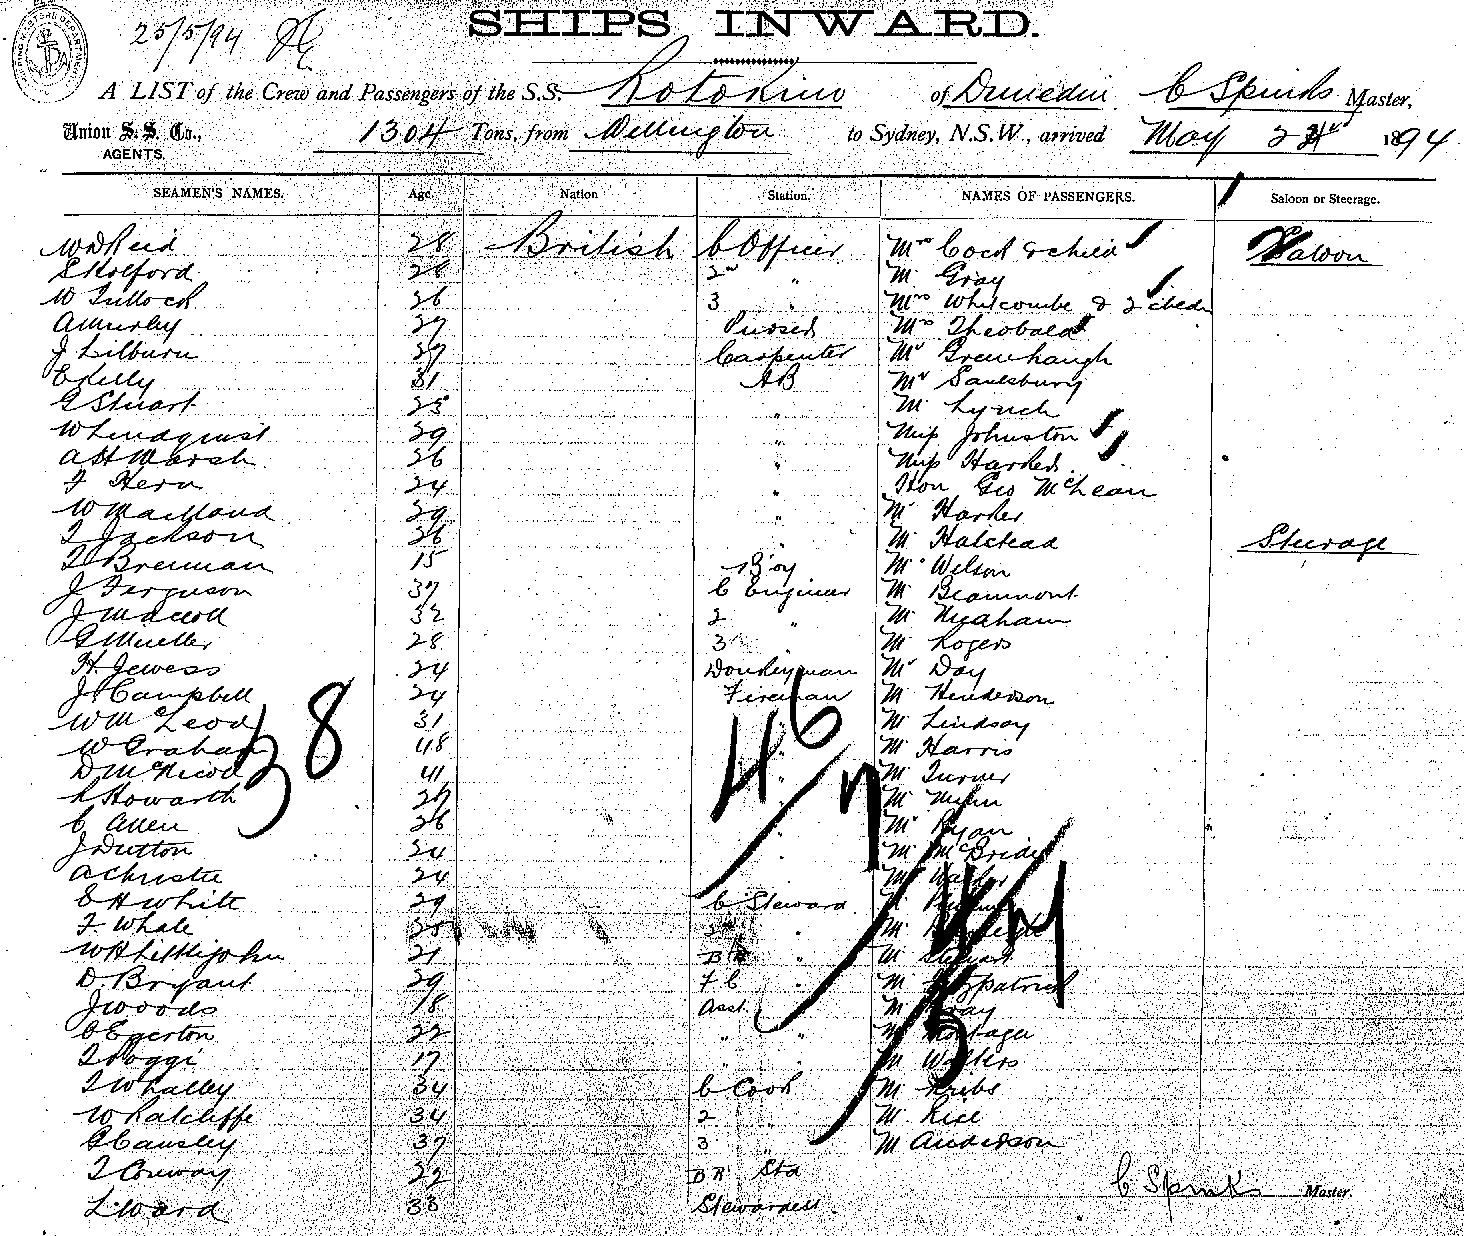 25/5/94
SHIPS INWARD.
A LIST of the Crew and Passengers of the S.S. Rotokino of Dunedin C Spinks Master,
Union S. S. Co., AGENTS. 1304 Tons, from Wellington to Sydney, N.S.W., arrived May 24 1894
SEAMEN'S NAMES. Age. Nation Station. NAMES OF PASSENGERS. Saloon or Steerage.
W D Reid 28 British C Officer Mrs Cock & child Saloon
S Holford 28 2nd " Mr Gray
W Tullock 26 3 " Mrs Whitcombe & 2 chedn
A Murley 27 Purser Mrs Theobald
J Lilburn 27 Carpenter Mr Greenhaugh
E Kelly 31 AB Mr Saulsbury
G Stuart 25 " Mr Lynch
W Lindquist 29 " Miss Johnston
A H Marsh 26 " Miss Harker
F Hern 24 " Hon Geo McLean
W Maitland 29 " Mr Harker
T Jackson 26 " Mr Halstead Steerage
T Brennan 15 Boy Mr Wilson
J Ferguson 37 C Engineer Mr Beaumont
J Macoll 32 2 " Mr
G Mueller 28 3 Mr Rogers
H Jewess 24 Donkeyman Mr Day
J Campbell 24 Fireman Mr Henderson
W McLeod 31 Mr Lindsay
W Graham 48 Mr Harris
D McNicol 41 " Mr Turner
Howarth 27 Mr
C Allen 26 " Mr Ryan
J Dutton 24 " Mr McBride
A Christie 24 Mr
E H White 29 C Steward
F Whale 25 2nd " M
W H Littlejohn 21 BR " M Stewart
D. Bryant 29 F C " M Fitzpatrick
J Woods 18 Asst. M Gray
C Egerton 22 " " M Montague
T Poggi 17 " " M Walters
T Whalley 34 C Cook M Krebs
W Ratcliffe 34 2 " M Rice
G Causley 37 3 " M Anderson
T Conway 22 BR Std
L Ward 33 Stewardess
C Spinks Master.
38
46
7